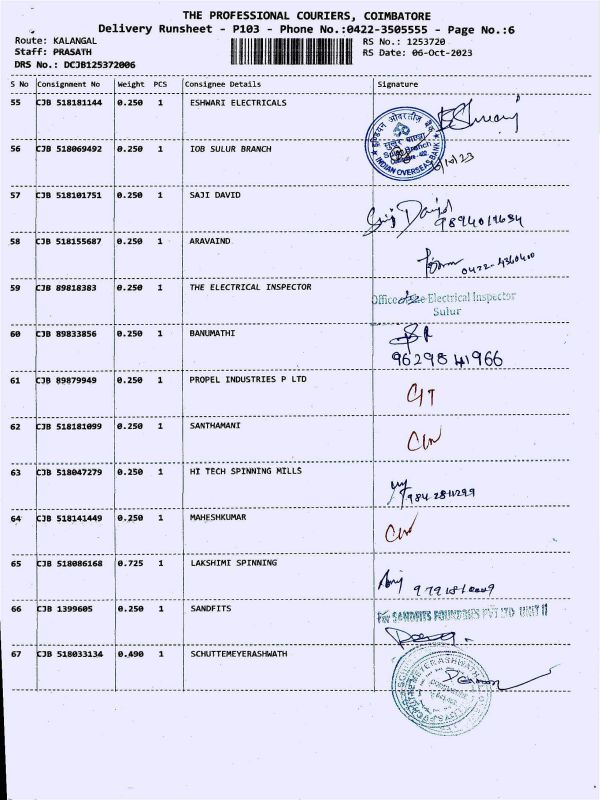 THE PROFESSIONAL COURIERS, COIMBATORE
Delivery Runsheet - P103 - Phone No.:0422-3505555 - Page No.:6
Route: KALANGAL RS No.: 1253720
Staff: PRASATH RS Date: 06-Oct-2023
DRS No.: DCJB125372006
S No Consignment No Weight PCS Consignee Details Signature
55 CJB 518181144 0.250 1 ESHWARI ELECTRICALS
56 CJB 518069492 0.250 1 IOB SULUR BRANCH
इण्डियन ओवरसीज़ बैंक
Sulur Branch
INDIAN OVERSEAS BANK
57 CJB 518101751 0.250 1 SAJI DAVID
Saji David
9894019634
58 CJB 518155687 0.250 1 ARAVAIND
0422-4360400
59 CJB 89818383 0.250 1 THE ELECTRICAL INSPECTOR
Office Electrical Inspector
Sulur
60 CJB 89833856 0.250 1 BANUMATHI
9629841966
61 CJB 89879949 0.250 1 PROPEL INDUSTRIES P LTD
62 CJB 518181099 0.250 1 SANTHAMANI
63 CJB 518047279 0.250 1 HI TECH SPINNING MILLS
9842811299
64 CJB 518141449 0.250 1 MAHESHKUMAR
65 CJB 518086168 0.725 1 LAKSHIMI SPINNING
66 CJB 1399605 0.250 1 SANDFITS
For SANDFITS FOUNDRIES PVT LTD UNIT II
67 CJB 518033134 0.490 1 SCHUTTEMEYERASHWATH